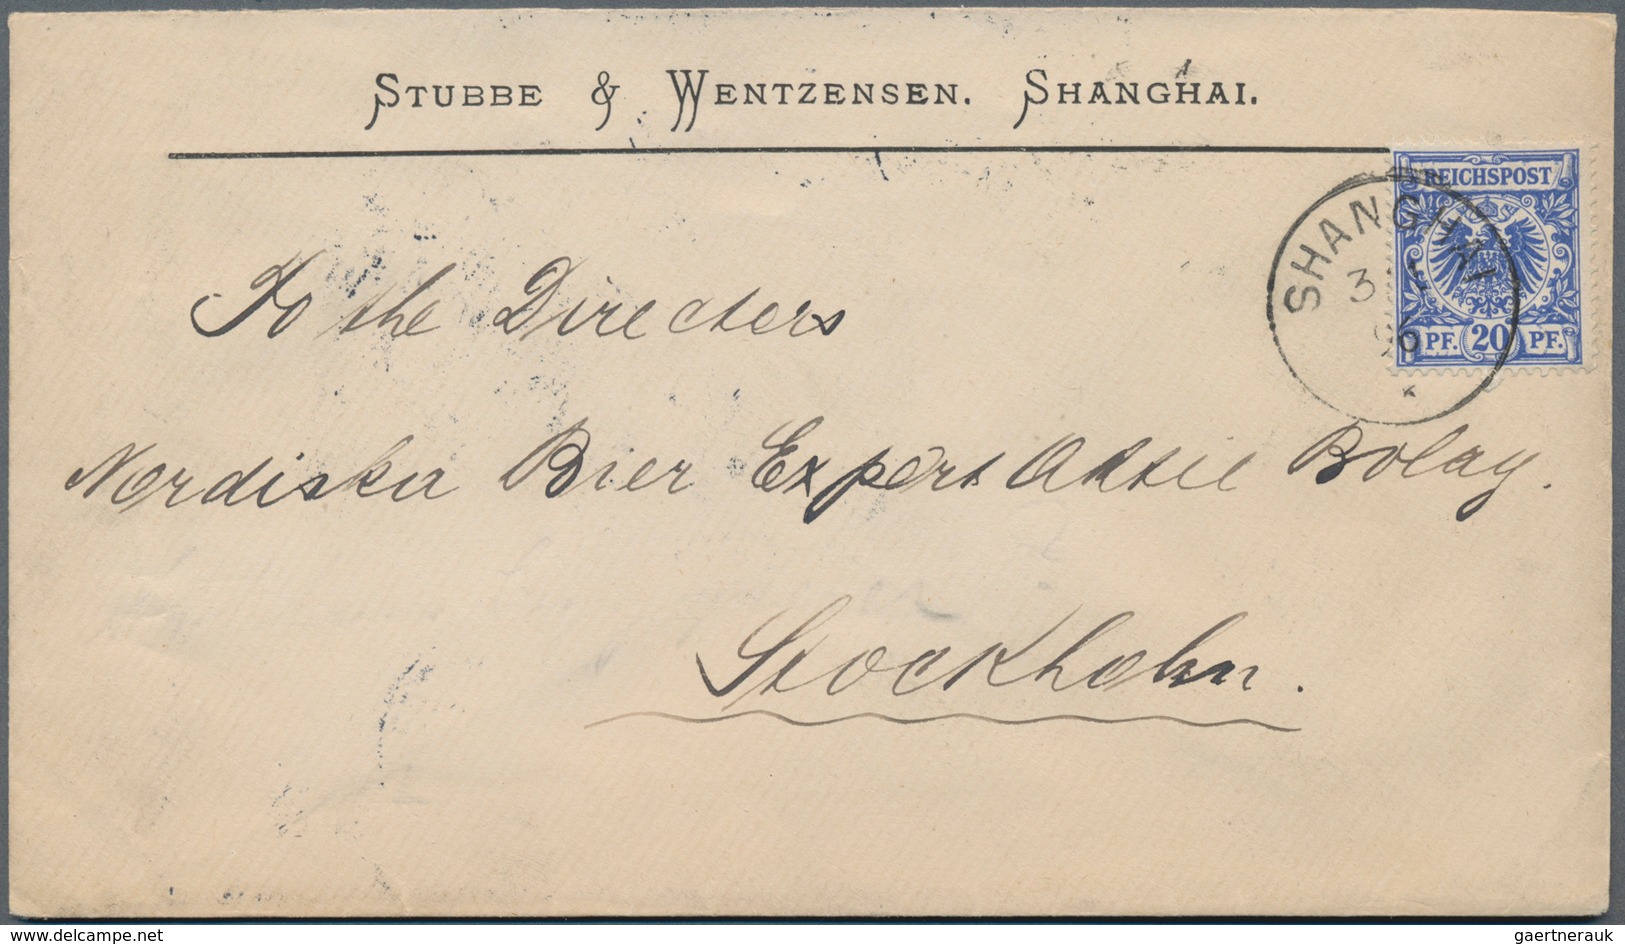 STUBBE & WENTZENSEN. SHANGHAI.
REICHSPOST
SHANGHAI
3
96
PF. 20 PF.
To the Directors
Nordiska Bier Export Aktie Bolag.
Stockholm.
delcampe.net
gaertnerauk